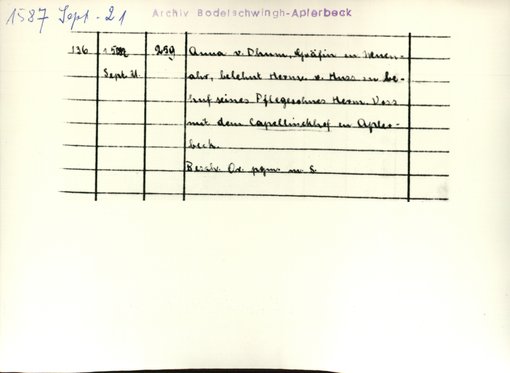 1587 Sept. 21
Archiv Bodelschwingh-Aplerbeck
136 1587 259 Anna v. Dhum, Gräfin zu Neuen-
Sept. 21. ahr, belehnt Herm. v. Huss zu be-
huf seines Pflegesohnes Herm. Voss
mit dem Capellinckhof zu Apler-
beck.
Beschr. Or. pgm. m. S.